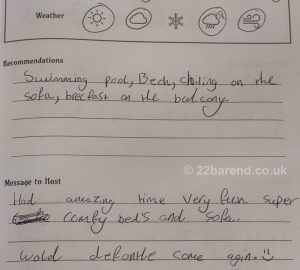 Weather
Recommendations
Swimming pool, Bed, chiling on the
sofa, brecfast on the balcony.
© 22barend.co.uk
Message to Host
Had amazing time very fun super
comfy bed's and sofa.
Wold defontle come agin.